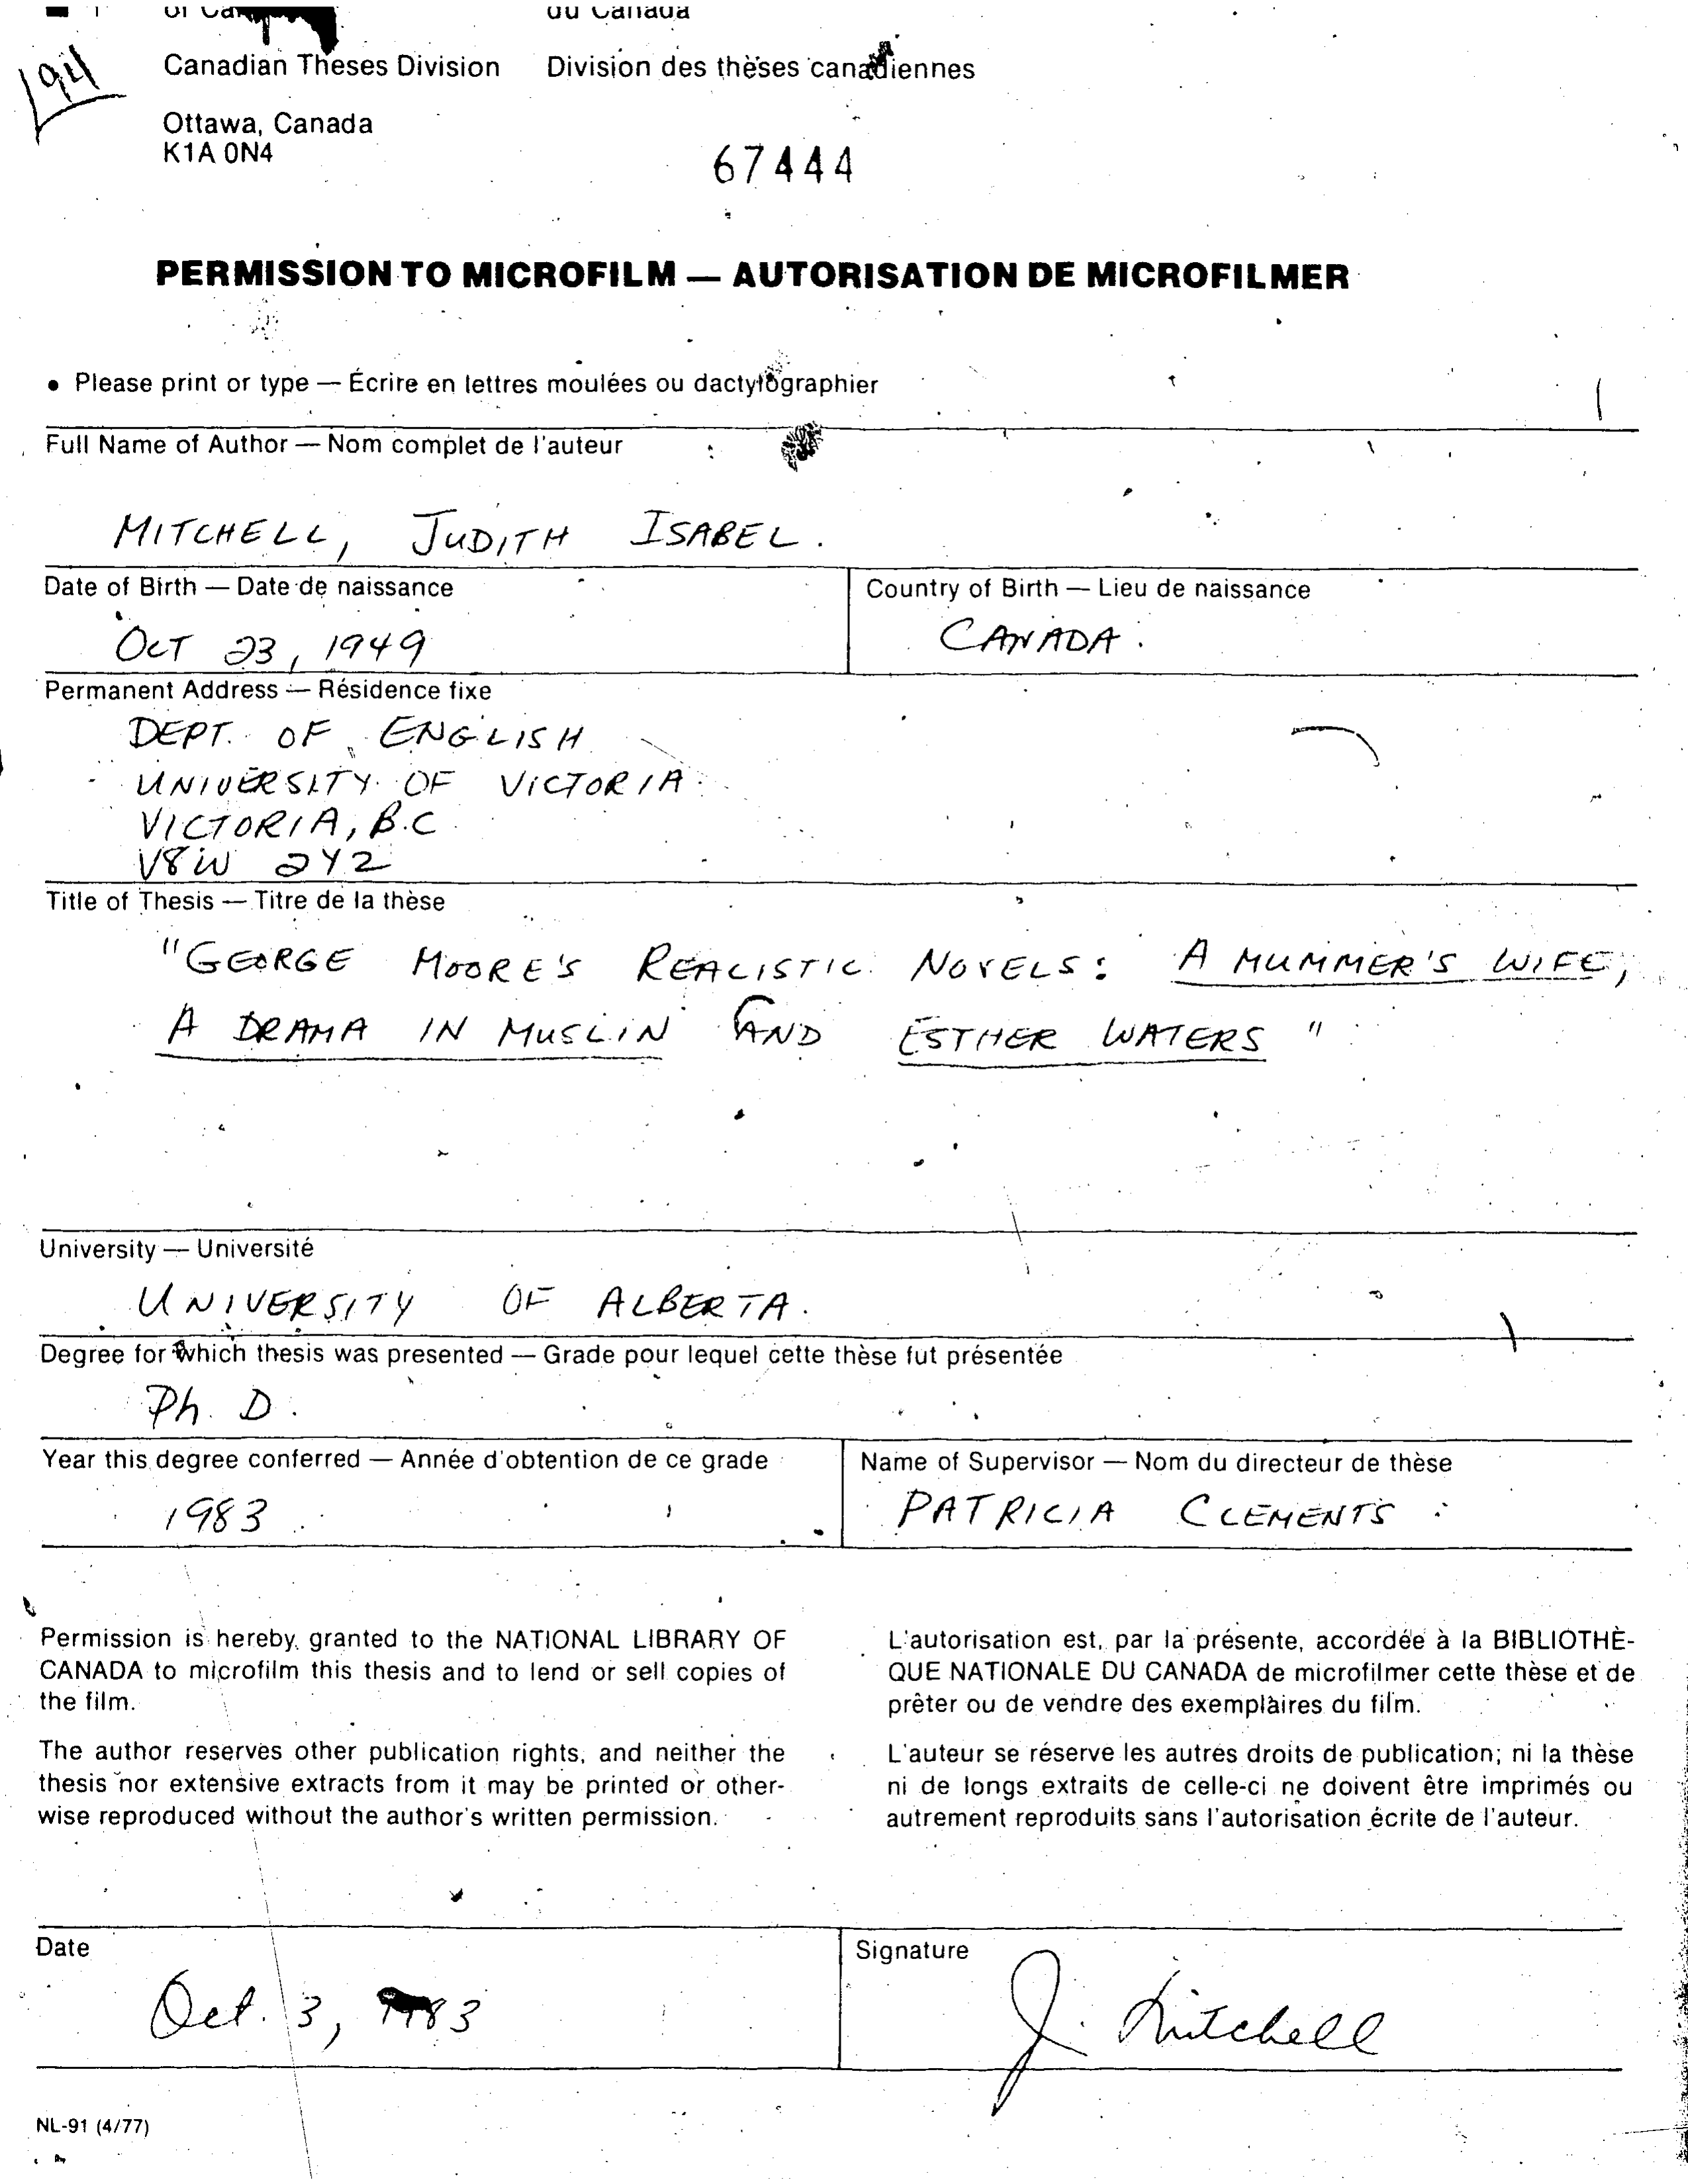 du Canada
194
Canadian Theses Division Division des thèses canadiennes
Ottawa, Canada
K1A 0N4
67444
PERMISSION TO MICROFILM — AUTORISATION DE MICROFILMER
• Please print or type — Écrire en lettres moulées ou dactylographier
Full Name of Author — Nom complet de l'auteur
MITCHELL, JUDITH ISABEL.
Date of Birth — Date de naissance Country of Birth — Lieu de naissance
OCT 23, 1949 CANADA.
Permanent Address — Résidence fixe
DEPT. OF ENGLISH
UNIVERSITY OF VICTORIA
VICTORIA, B.C
V8W 2Y2
Title of Thesis — Titre de la thèse
"GEORGE MOORE'S REALISTIC NOVELS: A MUMMER'S WIFE,
A DRAMA IN MUSLIN AND ESTHER WATERS"
University — Université
UNIVERSITY OF ALBERTA.
Degree for which thesis was presented — Grade pour lequel cette thèse fut présentée
Ph. D.
Year this degree conferred — Année d'obtention de ce grade Name of Supervisor — Nom du directeur de thèse
1983 PATRICIA CLEMENTS
Permission is hereby granted to the NATIONAL LIBRARY OF
CANADA to microfilm this thesis and to lend or sell copies of
the film.
The author reserves other publication rights, and neither the
thesis nor extensive extracts from it may be printed or other-
wise reproduced without the author's written permission.
L'autorisation est, par la présente, accordée à la BIBLIOTHÈ-
QUE NATIONALE DU CANADA de microfilmer cette thèse et de
prêter ou de vendre des exemplaires du film.
L'auteur se réserve les autres droits de publication; ni la thèse
ni de longs extraits de celle-ci ne doivent être imprimés ou
autrement reproduits sans l'autorisation écrite de l'auteur.
Date Signature
Oct. 3, 1983 J. Mitchell
NL-91 (4/77)